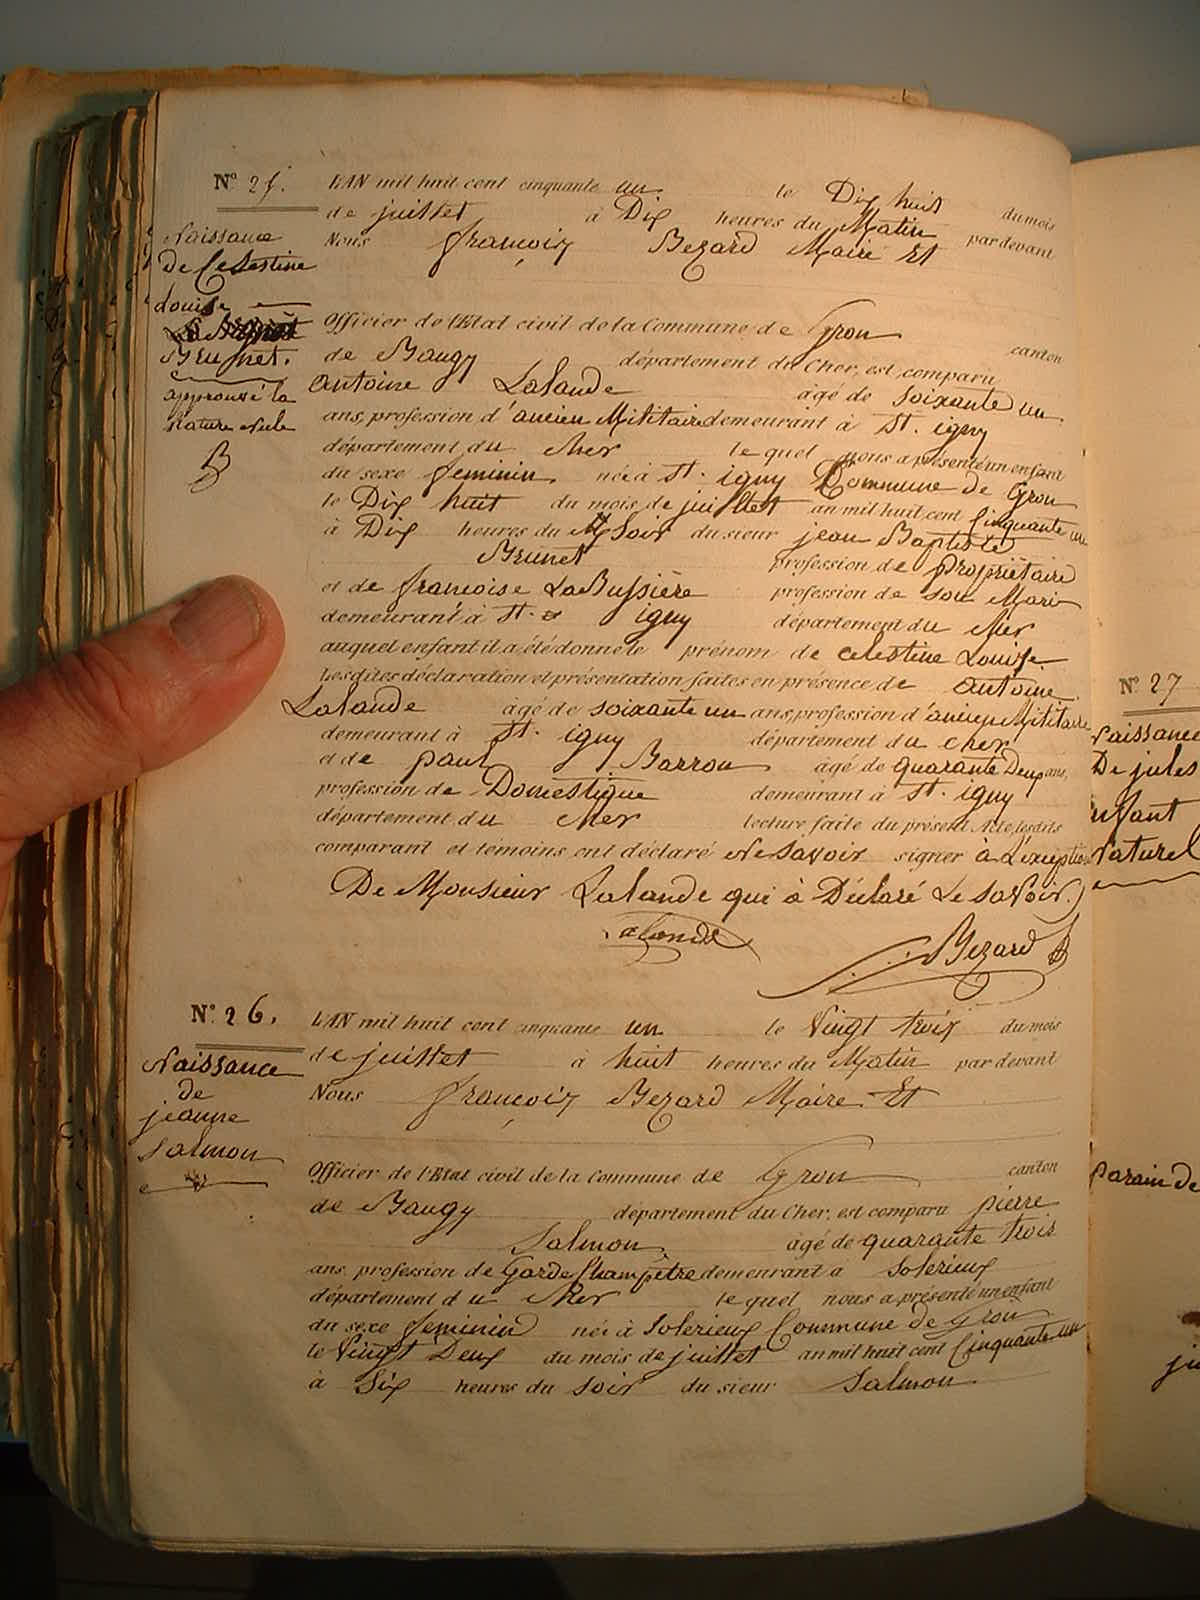 N° 25.
Naissance
de Celestine
Louise
Brunet.
approuvé la
rature nule
B
L'AN mil huit cent cinquante un le Dix huit du mois
de juillet à Dix heures du Matin par devant
Nous françois Bezard Maire Et
Officier de l'Etat civil de la Commune de Gron canton
de Baugy département du Cher, est comparu
Antoine Lalande âgé de soixante un
ans, profession d'ancien Militaire demeurant à St. igny
département du cher lequel nous a présenté un enfant
du sexe feminin née à St. igny Commune de Gron
le Dix huit du mois de juillet an mil huit cent Cinquante un
à Dix heures du Soir du sieur jean Baptiste
Brunet profession de Propriétaire
et de francoise LaBussière profession de son Mari
demeurant à St. igny département du cher
auquel enfant il a été donné le prénom de celestine Louise
Lesdites déclaration et présentation faites en présence de Antoine
Lalande âgé de soixante un ans, profession d'ancien Militaire
demeurant à St. igny département du cher
et de paul Barron âgé de quarante Deux ans,
profession de Domestique demeurant à St. igny
département du cher lecture faite du présent Acte, lesdits
comparant et témoins ont déclaré Ne Savoir signer à L'exception
De Monsieur Lalande qui à Déclaré Le savoir.
Lalande
Bezard
N° 26.
Naissance
de
jeanne
Salmon
L'AN mil huit cent cinquante un le Vingt trois du mois
de juillet à huit heures du Matin par devant
Nous françois Bezard Maire Et
Officier de l'Etat civil de la Commune de Gron canton
de Baugy département du Cher, est comparu pierre
Salmon âgé de quarante trois
ans, profession de Garde Champêtre demeurant à Solerieux
département du cher lequel nous a présenté un enfant
du sexe feminin née à Solerieux Commune de Gron
le Vingt Deux du mois de juillet an mil huit cent Cinquante un
à Six heures du soir du sieur Salmon
N° 27
Naissance
De jules
enfant
Naturel
parain de